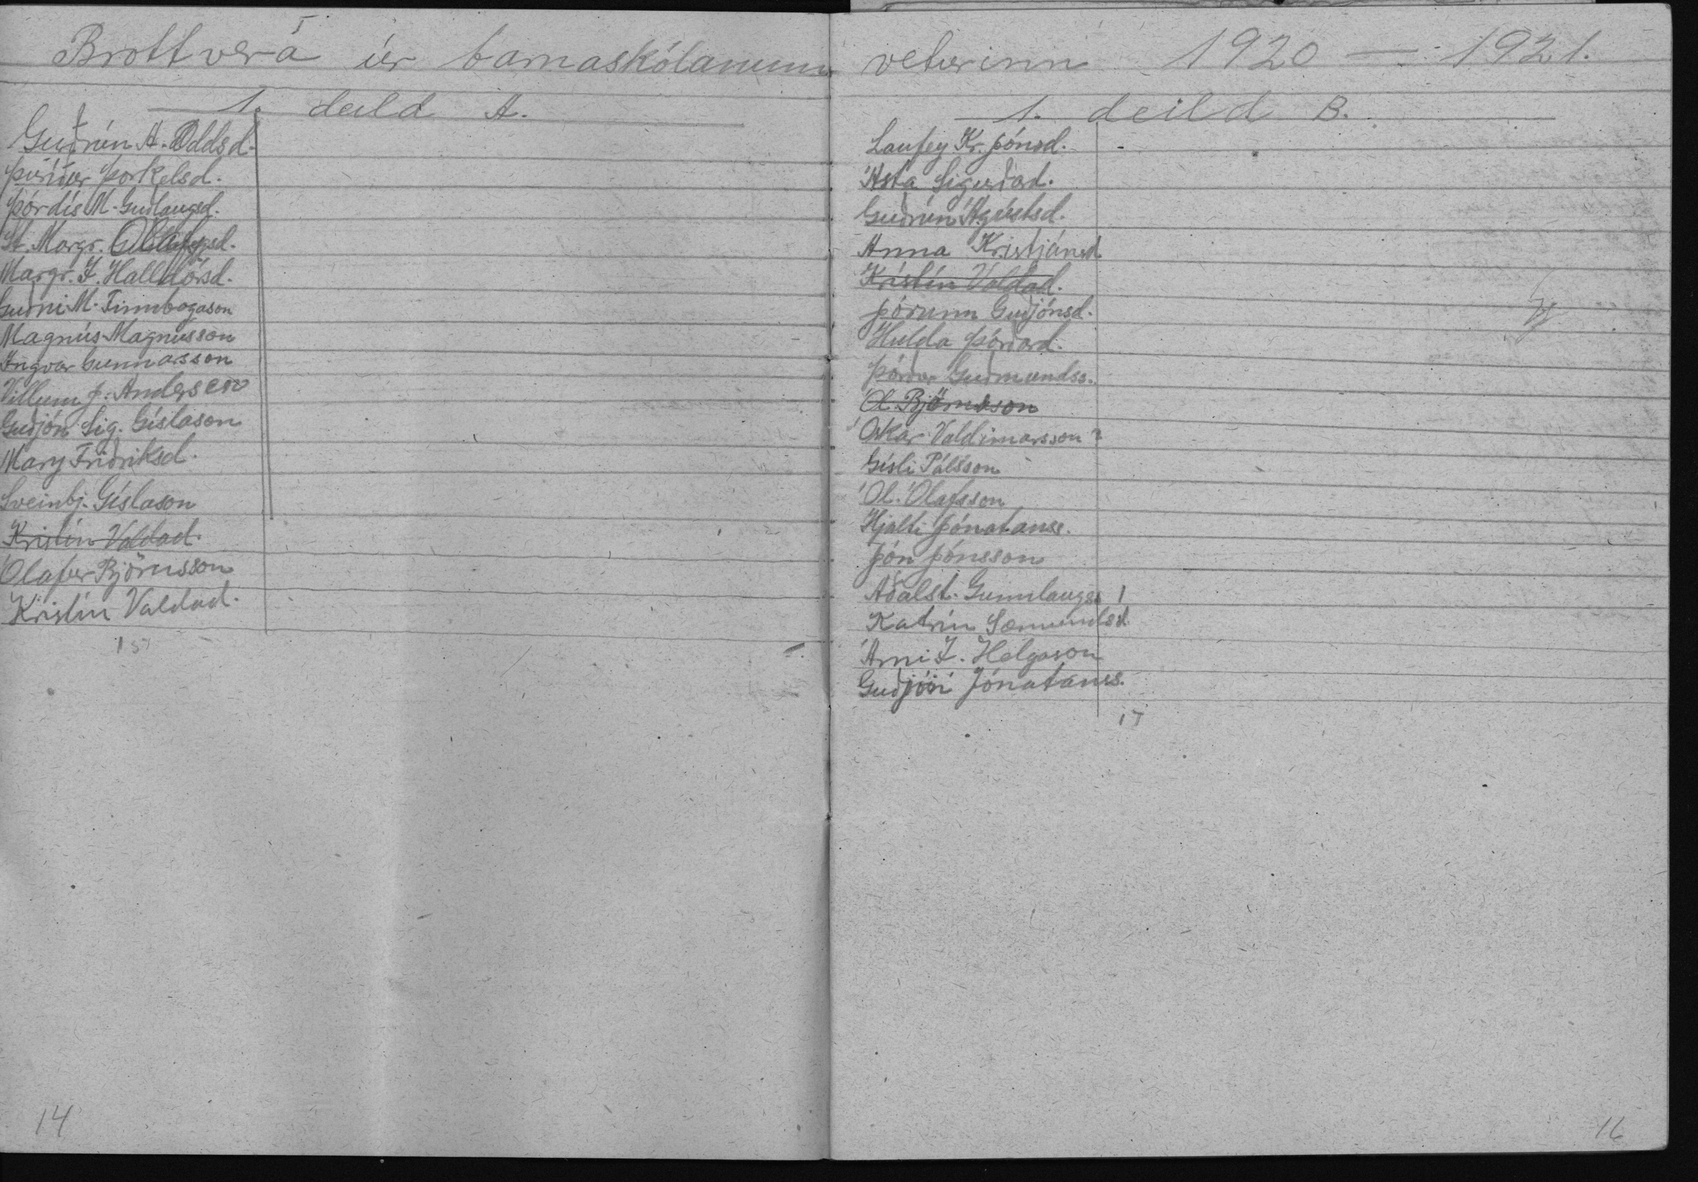 Brottverá úr barnaskólanum
1. deild A.
Guðrún A. Oddsd.
Þuríður Þorkelsd.
Þórdís M. Guðlaugsd.
St. Margr. Ólafsd.
Margr. I. Halldórsd.
Guðni M. Finnbogason
Magnús Magnússon
Ingvar Gunnarsson
Villum J. Andersen
Guðjón Sig. Gíslason
Mary Friðriksd.
Sveinbj. Gíslason
Kristín Valdad.
Ólafur Björnsson
Kristín Valdad.
14
veturinn 1920 — 1921.
1. deild B.
Laufey Kr. Jónsd.
Ásta Sigurðard.
Guðrún Ágústsd.
Anna Kristjánsd.
Kristín Valdad.
Þórunn Guðjónsd.
Hulda Þórðard.
Þórður Guðmundss.
Ól. Björnsson
Óskar Valdimarsson
Gísli Pálsson
Ól. Ólafsson
Hjalti Jónatanss.
Jón Jónsson
Aðalst. Gunnlaugss
Katrín Sæmundsd.
Árni I. Helgason
Guðjón Jónatanss.
17
16